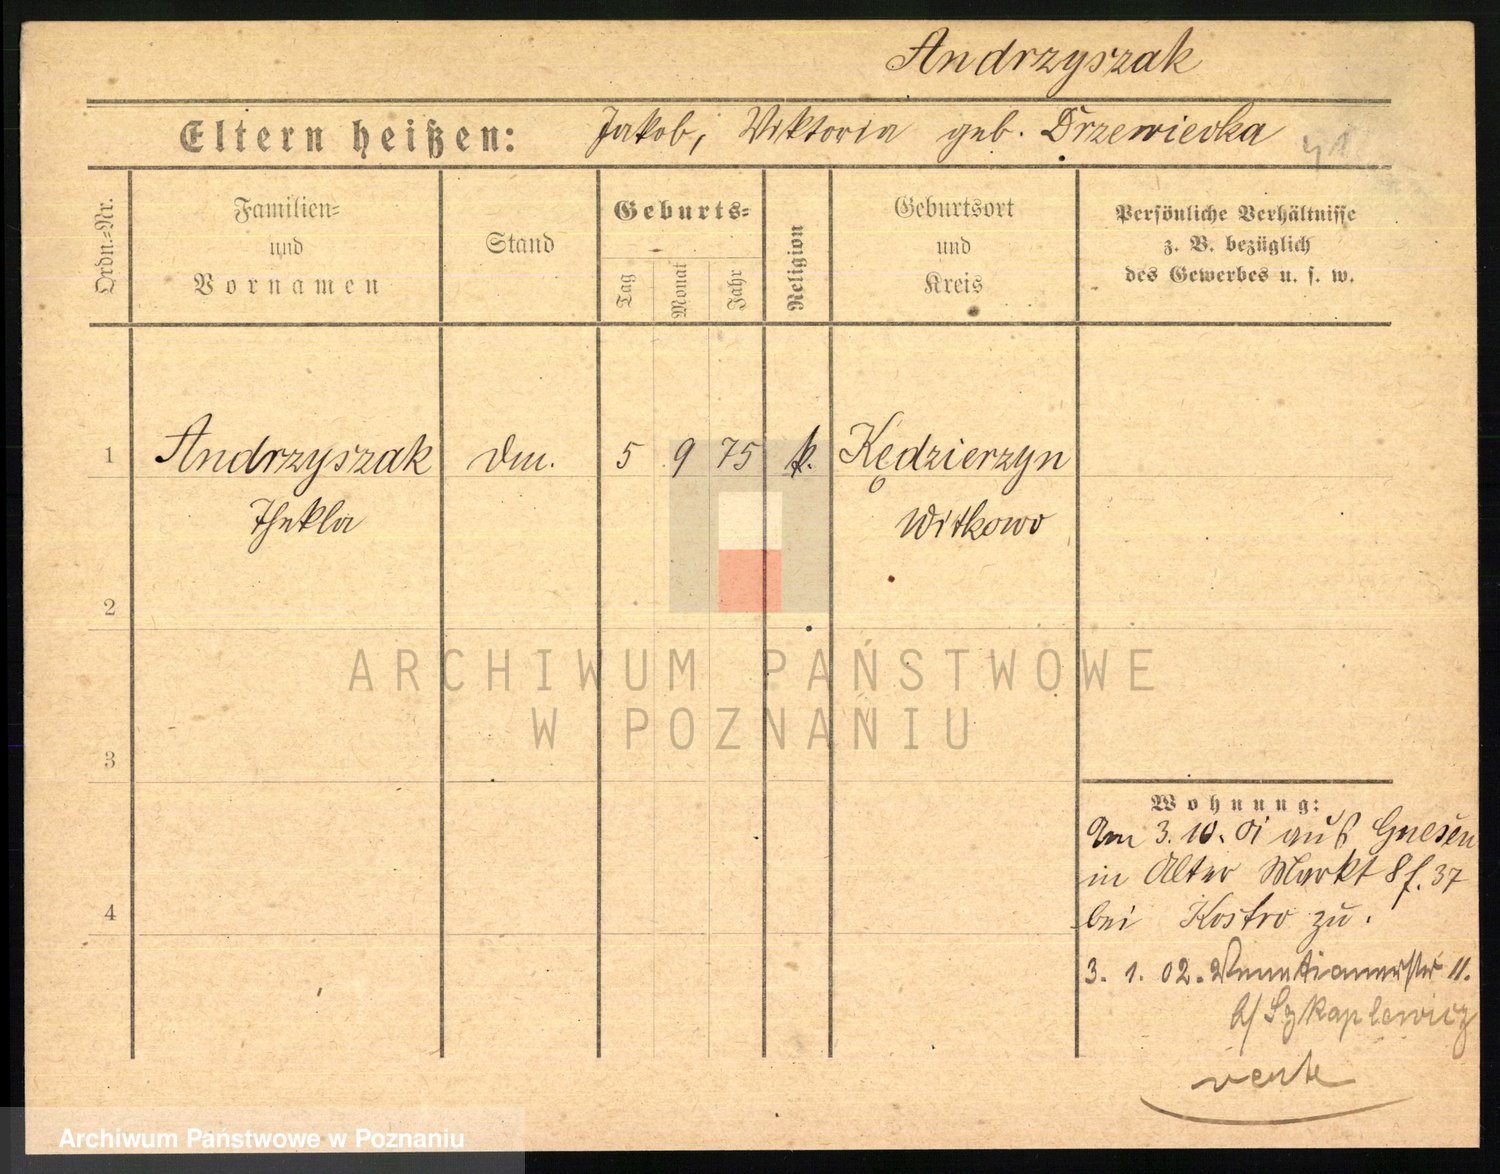 Andrzyszak
Eltern heißen: Jakob, Viktoria geb. Drzewiecka
Ordn.-Nr.
Familien-
und
Vornamen
Stand
Geburts-
Tag
Monat
Jahr
Religion
Geburtsort
und
Kreis
Persönliche Verhältnisse
z. B. bezüglich
des Gewerbes u. s. w.
1 Andrzyszak Dm. 5 9 75 k. Kędzierzyn
Thekla Witkowo
2
ARCHIWUM PAŃSTWOWE
W POZNANIU
3
Wohnung:
Am 3. 10. 01 aus Gnesen
in Alter Markt 8 f. 37
4
bei Kostro zu.
3. 1. 02. Venetianerstr 11.
b/ Szkaplewicz
verte
Archiwum Państwowe w Poznaniu